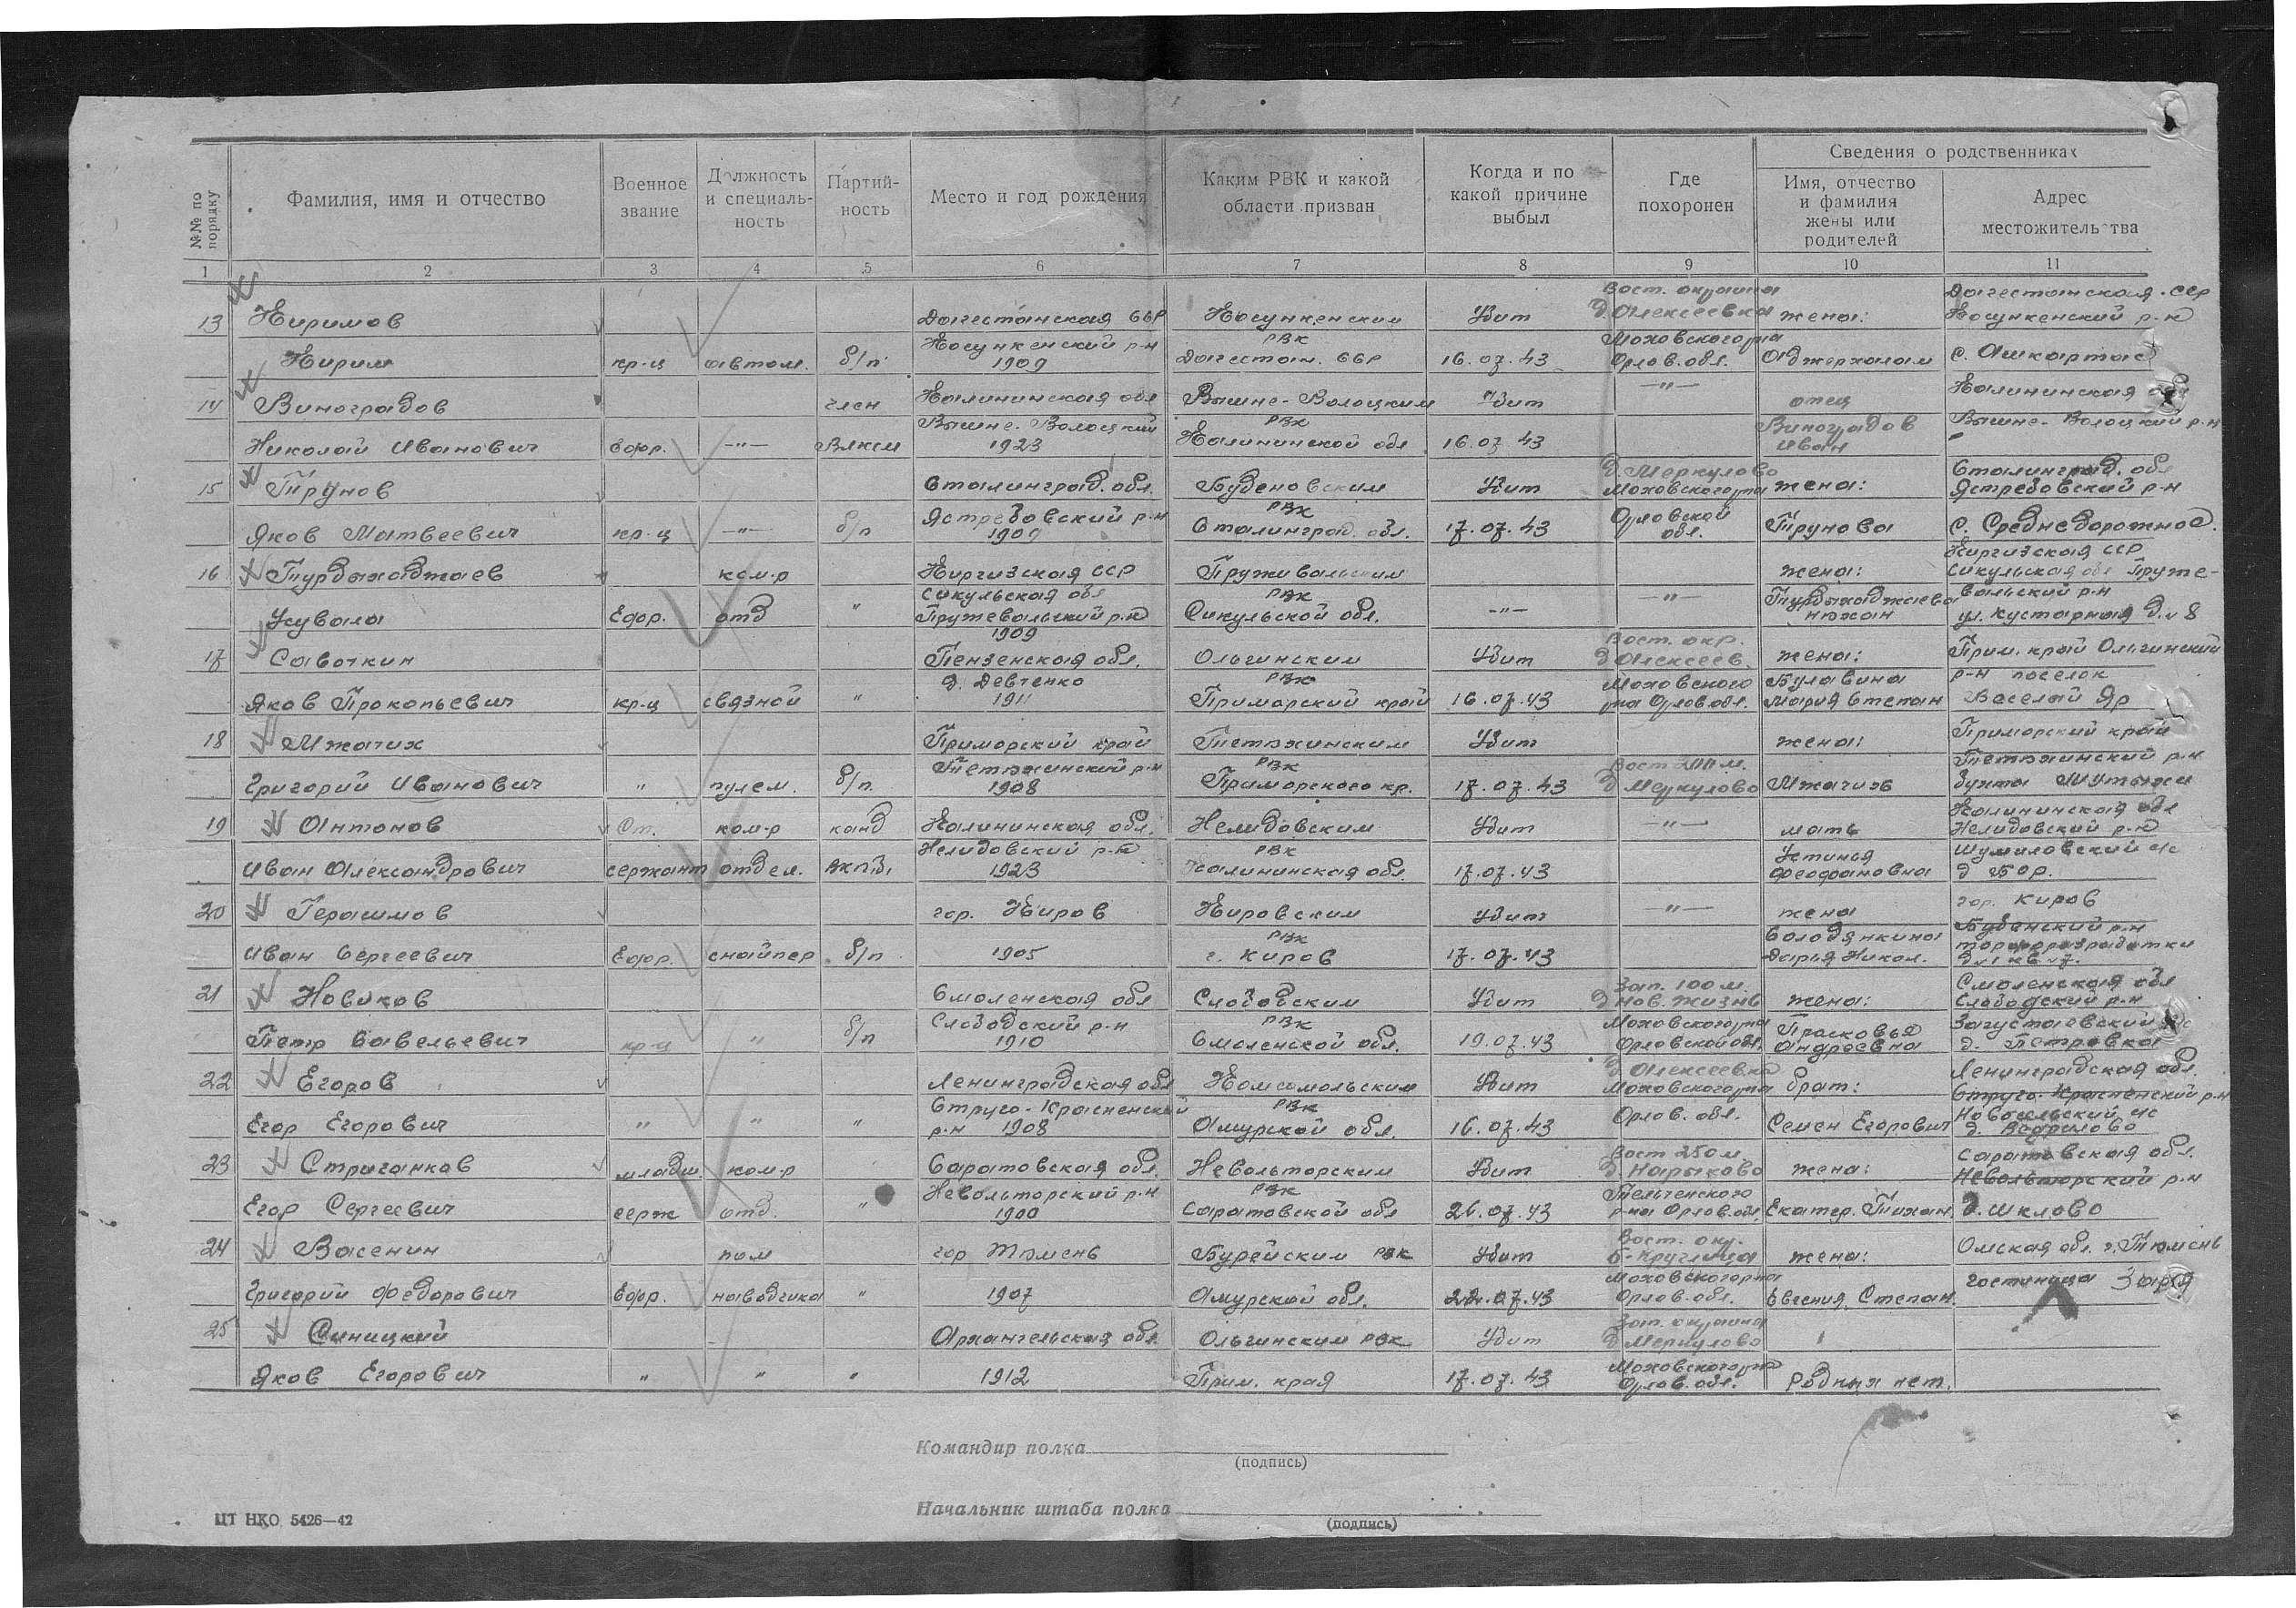 №№ по порядку
Фамилия, имя и отчество
Военное звание
Должность и специальность
Партийность
Место и год рождения
Каким РВК и какой области призван
Когда и по какой причине выбыл
Где похоронен
Сведения о родственниках
Имя, отчество и фамилия жены или родителей
Адрес местожительства
1 2 3 4 5 6 7 8 9 10 11
Вост. окраина Дагестанская ССР
13 Киримов Дагестанская ССР Убит д. Алексеевка жена:
РВК Моховского р-на
Кирим кр-ц автом. б/п 1909 Дагестан. ССР 16.07.43 Орлов. обл. с. Ашкартас
14 Виноградов член Калининская обл Вышне-Волоцким Убит —"— отец Калининская обл
Вышне-Волоцкий РВК Виноградов Вышне-Волоцкий р-н
Николай Иванович Ефр. —"— ВЛКСМ 1923 Калининской обл 16.07.43 Иван
15 Трунов Сталинград. обл. Буденовским Убит д. Меркулово Моховского р-на жена: Сталинград. обл
Ястребовский р-н РВК Ястребовский р-н
Яков Матвеевич кр-ц —"— б/п 1909 Сталинград. обл. 17.07.43 Орловской обл. Трунова с. Средне дорожное.
Киргизская ССР
16 Турдыхаджаев ком-р Киргизская ССР Пружевальским жена: Сикульская обл Пруже-
Сикульская обл РВК —"— Турдыхаджаева вальский р-н
Усували Ефр. отд " Пружевальский р-н Сикульской обл. —"— ул. кустарная д. 8
1909
17 Савоткин Пензенская обл. Ольгинским Убит Вост. окр. д. Алексеев. жена: Прим. край Ольгинский
РВК Моховского Булавина р-н поселок
Яков Прокопьевич кр-ц связной " 1911 Приморский край 16.07.43 р-на Орлов обл. Мария Степан Веселый Яр
18 Мжачих Приморский край Тетюхинским Убит жена: Приморский край
Тетюхинский р-н РВК Вост 200 м. Тетюхинский р-н
Григорий Иванович " пулем. б/п. 1908 Приморского кр. 17.07.43 д Меркулово Мжачих бухта
19 Антонов Ст. ком-р канд Калининская обл. Нелидовским Убит —"— мать Калининская обл Нелидовский р-н
Нелидовский р-н РВК Устинья Шумиловский с/с
Иван Александрович сержант отдел. ВКП/б/ 1923 Калининская обл. 17.07.43 Феофановна д Бор.
20 Герасимов гор. Киров Кировским Убит —"— жена гор. Киров
РВК Солодянкина р-н
Иван Сергеевич Ефр. снайпер б/п 1905 г. Киров 17.07.43 Дарья Никол. торфоразработки
21 Новиков Смоленская обл Слободским Убит Зап. 100 м. д нов. жизнь жена: Смоленская обл Слободский р-н
Слободский р-н РВК Моховского р-на Прасковья Загустаевский с/с
Петр Савельевич кр-ц " б/п 1910 Смоленской обл. 19.07.43 Орловской обл. Андреевна д. Петровка
22 Егоров Ленинградская обл Комсомольским Убит д Алексеевка Моховского р-на брат: Ленинградская обл.
Струго-Красненский РВК Струго-Красненский р-н
Егор Егорович " " " р-н 1908 Амурской обл. 16.07.43 Орлов. обл. Семен Егорович Новосельский с/с
23 Стриганков младш. ком-р Саратовская обл. Невольторским Убит Вост 250 м д. Нарыково жена: Саратовская обл.
Невольторский р-н РВК Тельченского Невольторский р-н
Егор Сергеевич серж отд. " 1900 Саратовской обл 26.07.43 р-на Орлов. обл. Екатер. Тихан. д. Шклово
24 Васенин пом гор Тюмень Бурейским РВК Убит Вост. окр. Б-Круглица жена: Омская обл. г. Тюмень
Моховского р-на
Григорий Федорович Ефр. наводчика " 1907 Амурской обл. 22.07.43 Орлов. обл. Евгения Степан. гостиница Заря
25 Синицкий Архангельская обл. Ольгинским РВК Убит Зап. окраина д Меркулово
Моховского р-на
Яков Егорович " " " 1912 Прим. края 17.07.43 Орлов. обл. Родных нет.
Командир полка
(подпись)
Начальник штаба полка
(подпись)
ЦТ НКО 5426—42